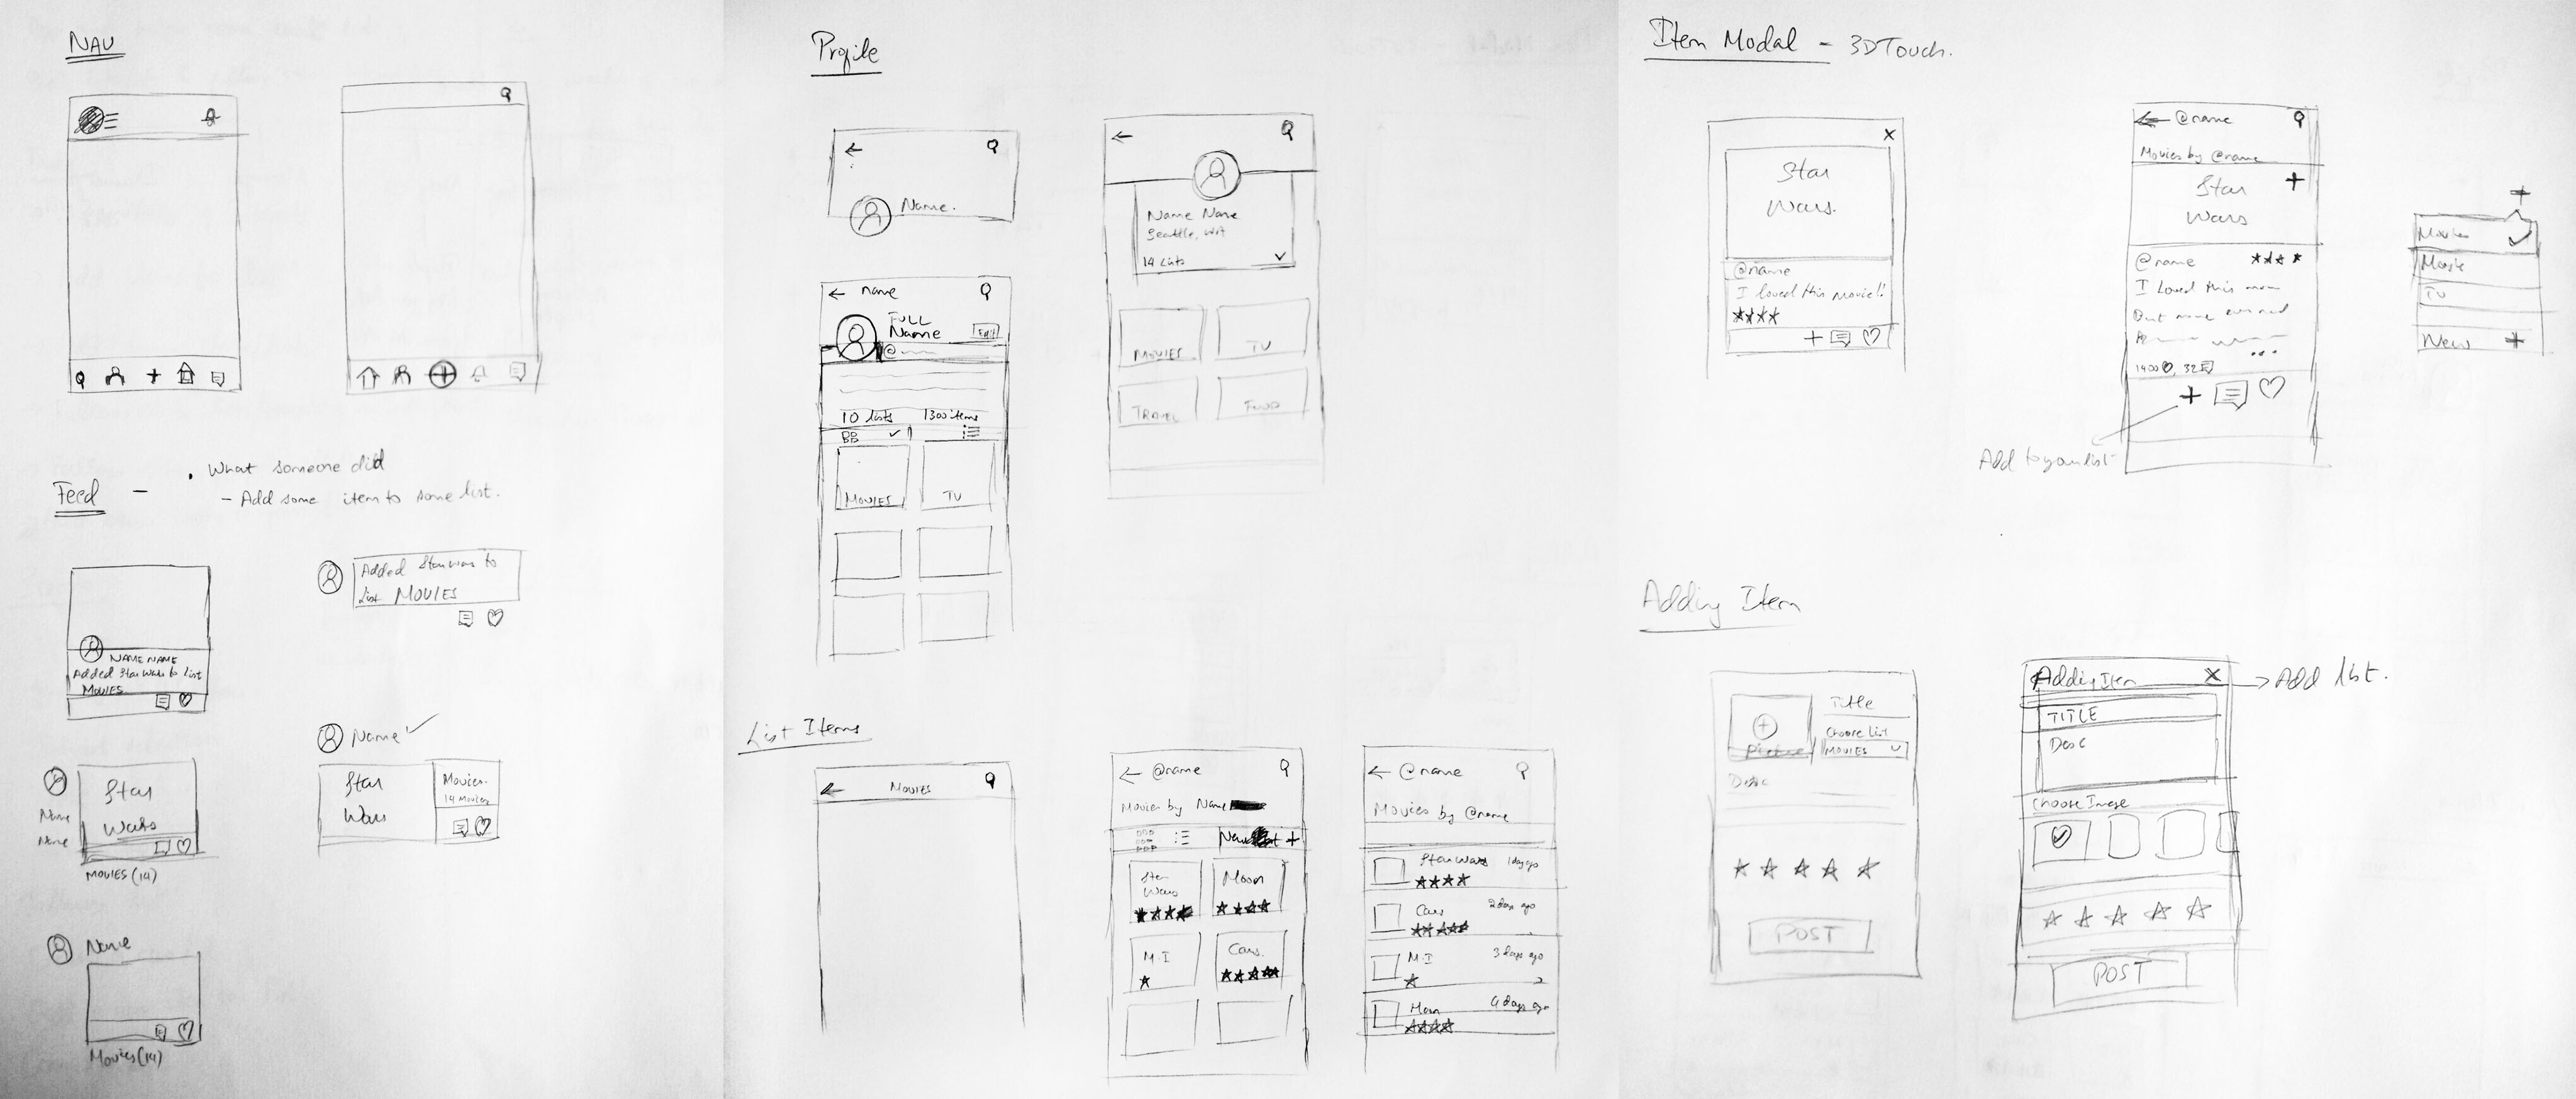 NAV
Feed -
• What someone did
- Add some item to some list.
NAME NAME
Added Star Wars to list
MOVIES
Added Star wars to
list MOVIES
Name
Name
Star
Wars
MOVIES (14)
Name
Star
Wars
Movies.
14 Movies
Name
Movies (14)
Profile
Name.
name
FULL
Name
Edit
@
10 lists
1300 items
MOVIES
TV
Name Name
Seattle, WA
14 Lists
MOVIES
TV
TRAVEL
FOOD
List Items
MOVIES
@name
Movies by Name
New
+
Star
Wars
★★★★
Moon
★★★★
M.I
★
Cars.
★★★★★
@name
Movies by @name
Star Wars 1 day ago
★★★★
Cars 2 days ago
★★★★★
M.I 3 days ago
★
Moon 4 days ago
★★★★
Item Modal - 3D Touch.
X
Star
Wars.
@name
I loved this movie!!
★★★★
+
@name
Movies by @name
Star
Wars
+
@name ★★★★
I Loved this
But
...
1400 , 32
+
Add to your list
+
Movies
Music
TV
New +
Adding Item
+
Picture
Title
Choose List
MOVIES
Desc
POST
Adding Item X
→ Add list.
TITLE
Desc
Choose Image
POST